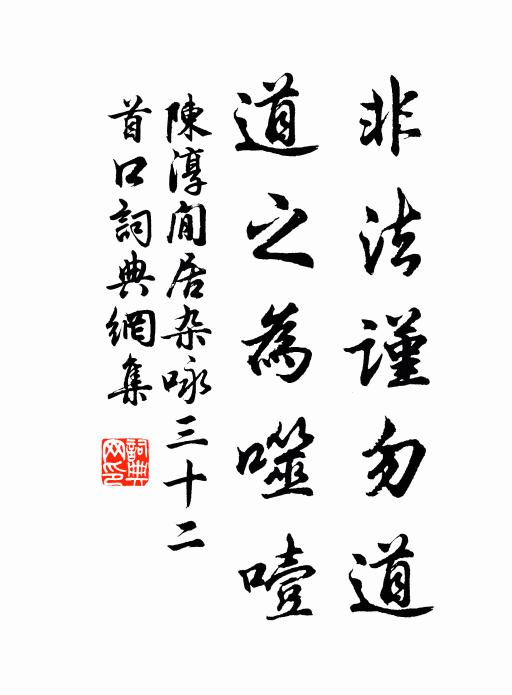 非法謹勿道
道之為噬噎
陳淳閒居杂咏三十二
首口詞典網集
詞典
网印